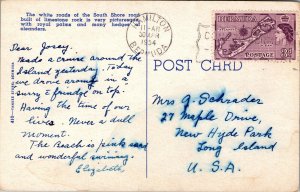 The white roads of the South Shore road
built of limestone rock is very picturesque,
with royal palms and many hedges
oleanders.
HAMILTON
AM
APR
1954
BERMUDA
BERMUDA
POSTAGE
POST CARD
Dear Jersey.
Made a cruise around the
Island yesterday. Today
we drove around in a
surry & fringe on top.
Having the time of our
lives. Never a dull
moment.
The Beach is pink sand
and wonderful swimming.
Elizabeth
Mrs G. Schrader
27 Maple Drive,
New Hyde Park
Long Island
U. S. A.